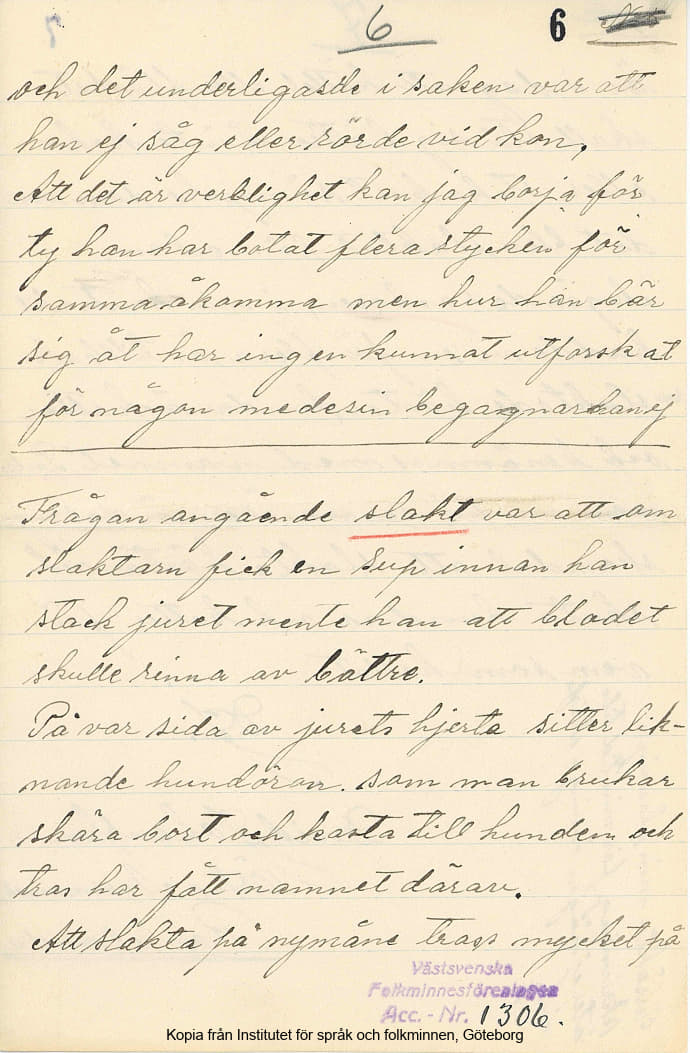 6 6
och det underligasde i saken var att
han ej såg eller rörde vid kon,
Att det är verklighet kan jag borja för
ty han har botat flera stycken för
samma åkomma men hur han bär
sig åt har ingen kunnat utforskat
för någon medesin begagnar han ej
Frågan angående slakt var att om
slaktarn fick en sup innan han
stack juret mente han att blodet
skulle rinna av bättre.
På var sida av jurets hjerta sitter lik-
nande hundöron. som man brukar
skära bort och kasta till hunden och
tros har fått namnet därav.
Att slakta på nymåne tros mycket på
Västsvenska
Folkminnesföreningen
Acc. - Nr. 1306.
Kopia från Institutet för språk och folkminnen, Göteborg